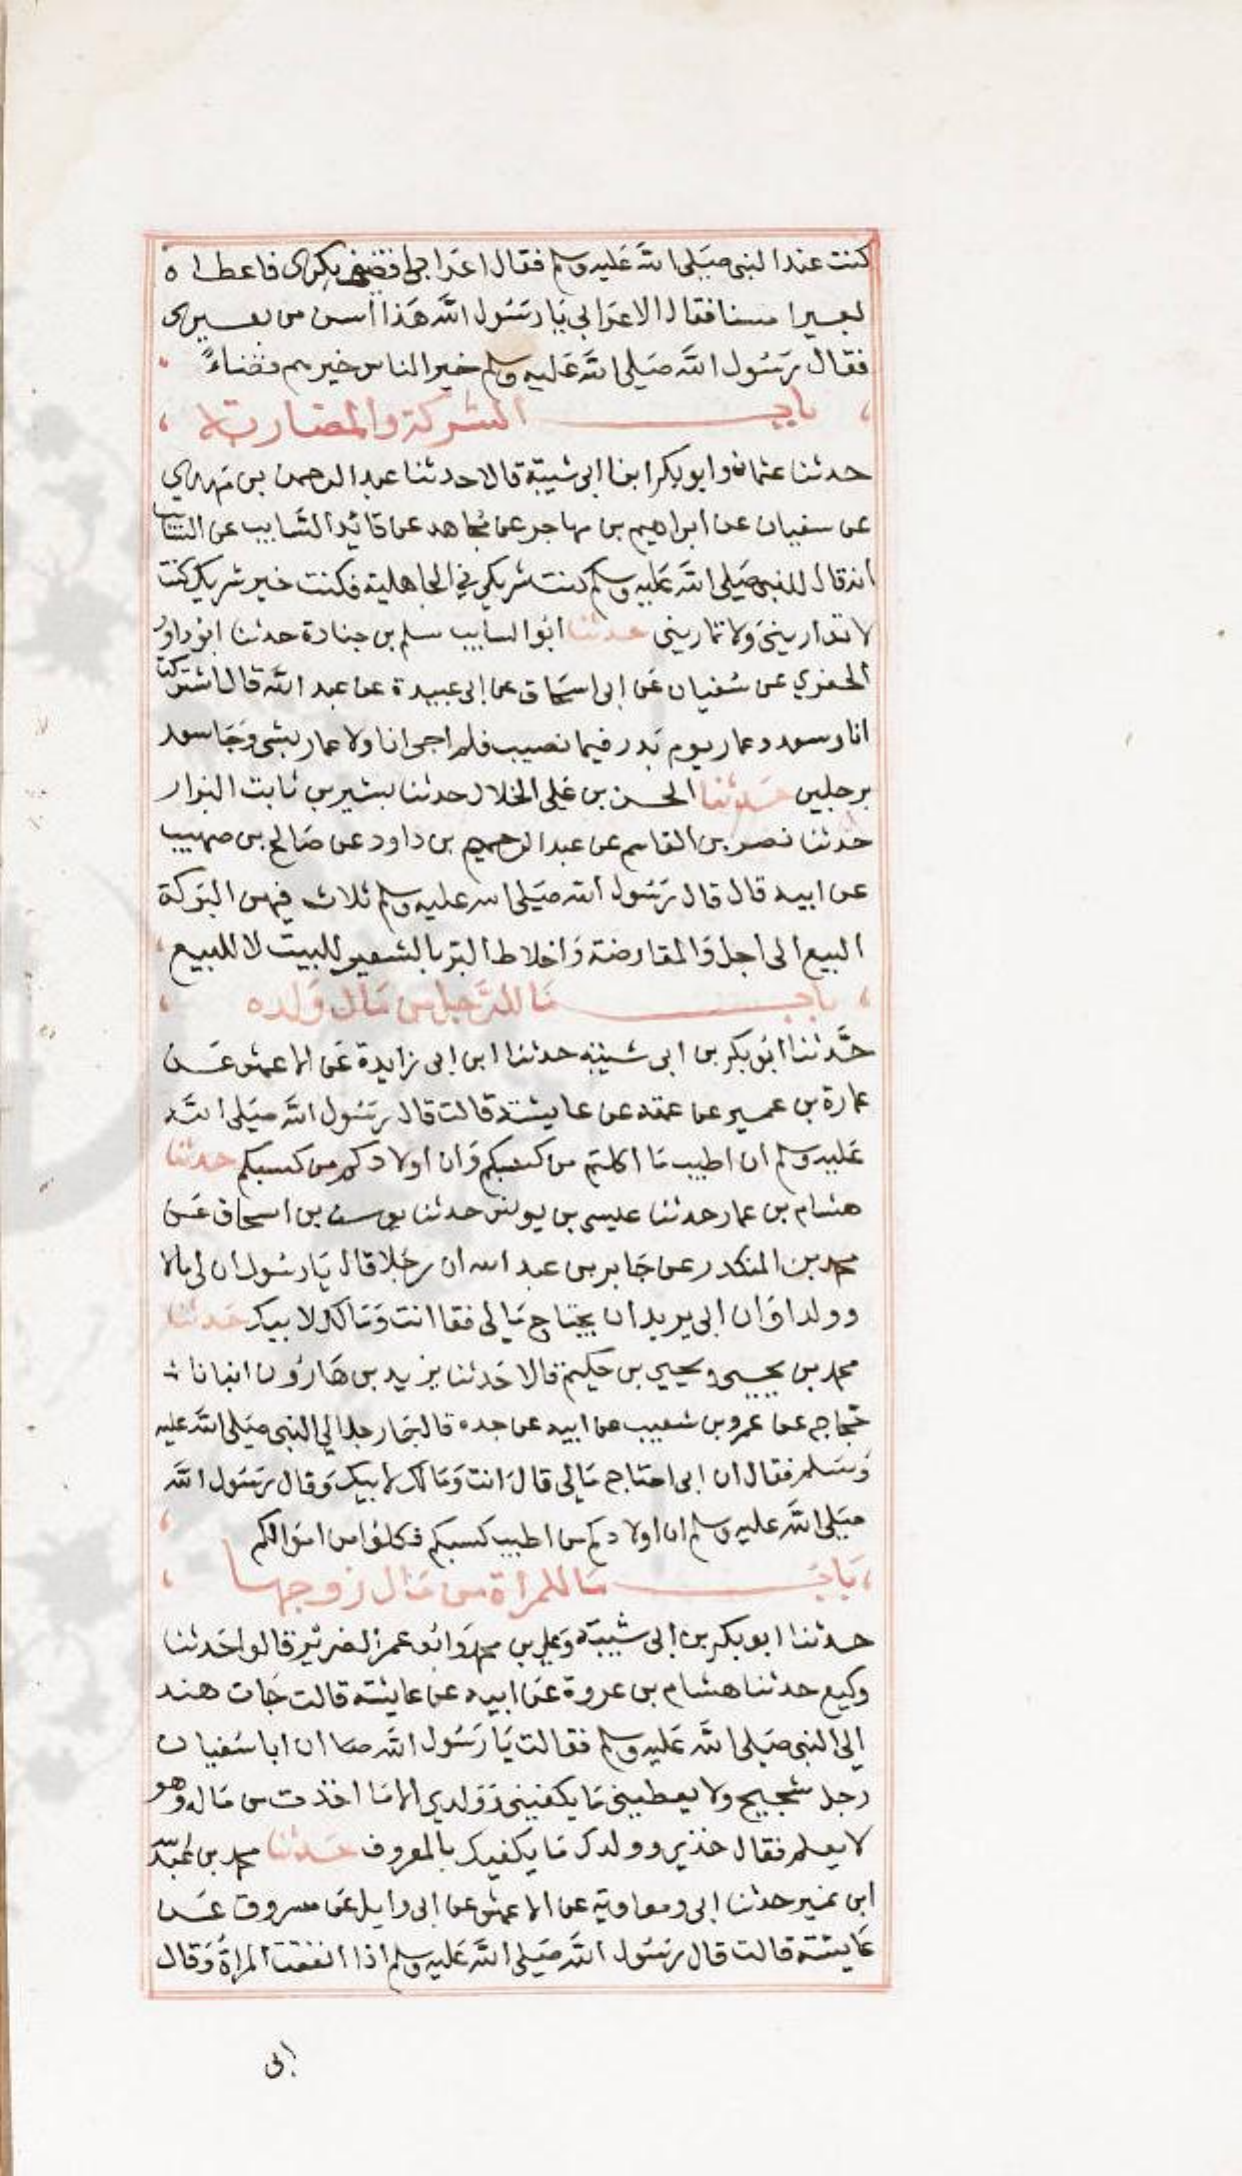 كنت عند النبي صلى الله عليه وسلم فقال اعرابي اقضني بكري فاعطاه
بعيرا مسنا فقال الاعرابي يا رسول الله هذا اسن من بعيري
فقال رسول الله صلى الله عليه وسلم خير الناس خيرهم قضاءً
باب الشركة والمضاربة
حدثنا عثمان وابو بكر ابنا ابى شيبة قالا حدثنا عبد الرحمن بن مهدي
عن سفيان عن ابراهيم بن مهاجر عن مجاهد عن قائد السايب عن السايب
انه قال للنبي صلى الله عليه وسلم كنت شريكي في الجاهلية فكنت خير شريك كنت
لا تداريني ولا تماريني حدثنا ابو السايب سلم بن جنادة حدثنا ابو داود
الحفري عن سفيان عن ابى اسحاق عن ابى عبيدة عن عبد الله قال اشتركت
انا وسعد وعمار يوم بدر فيما نصيب فلم اجى انا ولا عمار بشى وجا سعد
برجلين حدثنا الحسن بن على الخلال حدثنا بشر بن ثابت البزار
حدثنا نصر بن القاسم عن عبد الرحيم بن داود عن صالح بن صهيب
عن ابيه قال قال رسول الله صلى الله عليه وسلم ثلاث فيهن البركة
البيع الى اجل والمقارضة واخلاط البر بالشعير للبيت لا للبيع
باب ما للرجل من مال ولده
حدثنا ابو بكر بن ابى شيبه حدثنا ابن ابى زايدة عن الاعمش عن
عمارة بن عمير عن عمته عن عايشة قالت قال رسول الله صلى الله
عليه وسلم ان اطيب ما اكلتم من كسبكم وان اولادكم من كسبكم حدثنا
هشام بن عمار حدثنا عيسى بن يونس حدثنا يوسف بن اسحاق عن
محمد بن المنكدر عن جابر بن عبد الله ان رجلا قال يا رسول ان لى مالا
وولدا وان ابى يريد ان يجتاح مالى فقا انت ومالك لابيك حدثنا
محمد بن يحيى ويحيى بن حكيم قالا حدثنا يزيد بن هارون انبانا
حجاج عن عمرو بن شعيب عن ابيه عن جده قال جا رجل الى النبي صلى الله عليه
وسلم فقال ان ابى احتاج مالى قال انت ومالك لابيك وقال رسول الله
صلى الله عليه وسلم ان اولادكم من اطيب كسبكم فكلوا من اموالكم
باب ما للمراة من مال زوجها
حدثنا ابو بكر بن ابى شيبة وعلى بن محمد وابو عمر الضرير قالوا حدثنا
وكيع حدثنا هشام بن عروة عن ابيه عن عايشه قالت جات هند
الى النبي صلى الله عليه وسلم فقالت يا رسول الله ان ابا سفيان
رجل شحيح ولا يعطينى ما يكفينى وولدي الا ما اخذت من ماله وهو
لا يعلم فقال خذي وولدك ما يكفيك بالمعروف حدثنا محمد بن عبد الله
ابن نمير حدثنا ابى ومعاوية عن الاعمش عن ابى وايل عن مسروق عن
عايشة قالت قال رسول الله صلى الله عليه وسلم اذا انفقت المراة وقال
ابى